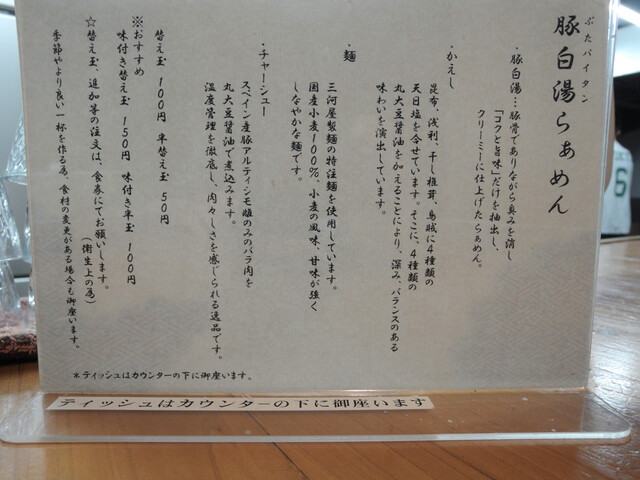 ぶたパイタン
豚白湯らぁめん
・豚白湯…豚骨でありながら臭みを消し
「コクと旨味」だけを抽出し、
クリーミーに仕上げたらぁめん。
・かえし
昆布、浅利、干し椎茸、烏賊に4種類の
天日塩を合せています。そこに、4種類の
丸大豆醤油を加えることにより、深み、バランスのある
味わいを演出しています。
・麺
三河屋製麺の特注麺を使用しています。
国産小麦100%、小麦の風味、甘味が強く
しなやかな麺です。
・チャーシュー
スペイン産豚アルティシモ雌のみのバラ肉を
丸大豆醤油で煮込みます。
温度管理を徹底し、肉々しさを感じられる逸品です。
替え玉 100円 半替え玉 50円
※おすすめ
味付き替え玉 150円 味付き半玉 100円
☆替え玉、追加等の注文は、食券にてお願いします。
(衛生上の為)
季節やより良い一杯を作る為、食材の変更がある場合も御座います。
*ティッシュはカウンターの下に御座います。
ティッシュはカウンターの下に御座います
6